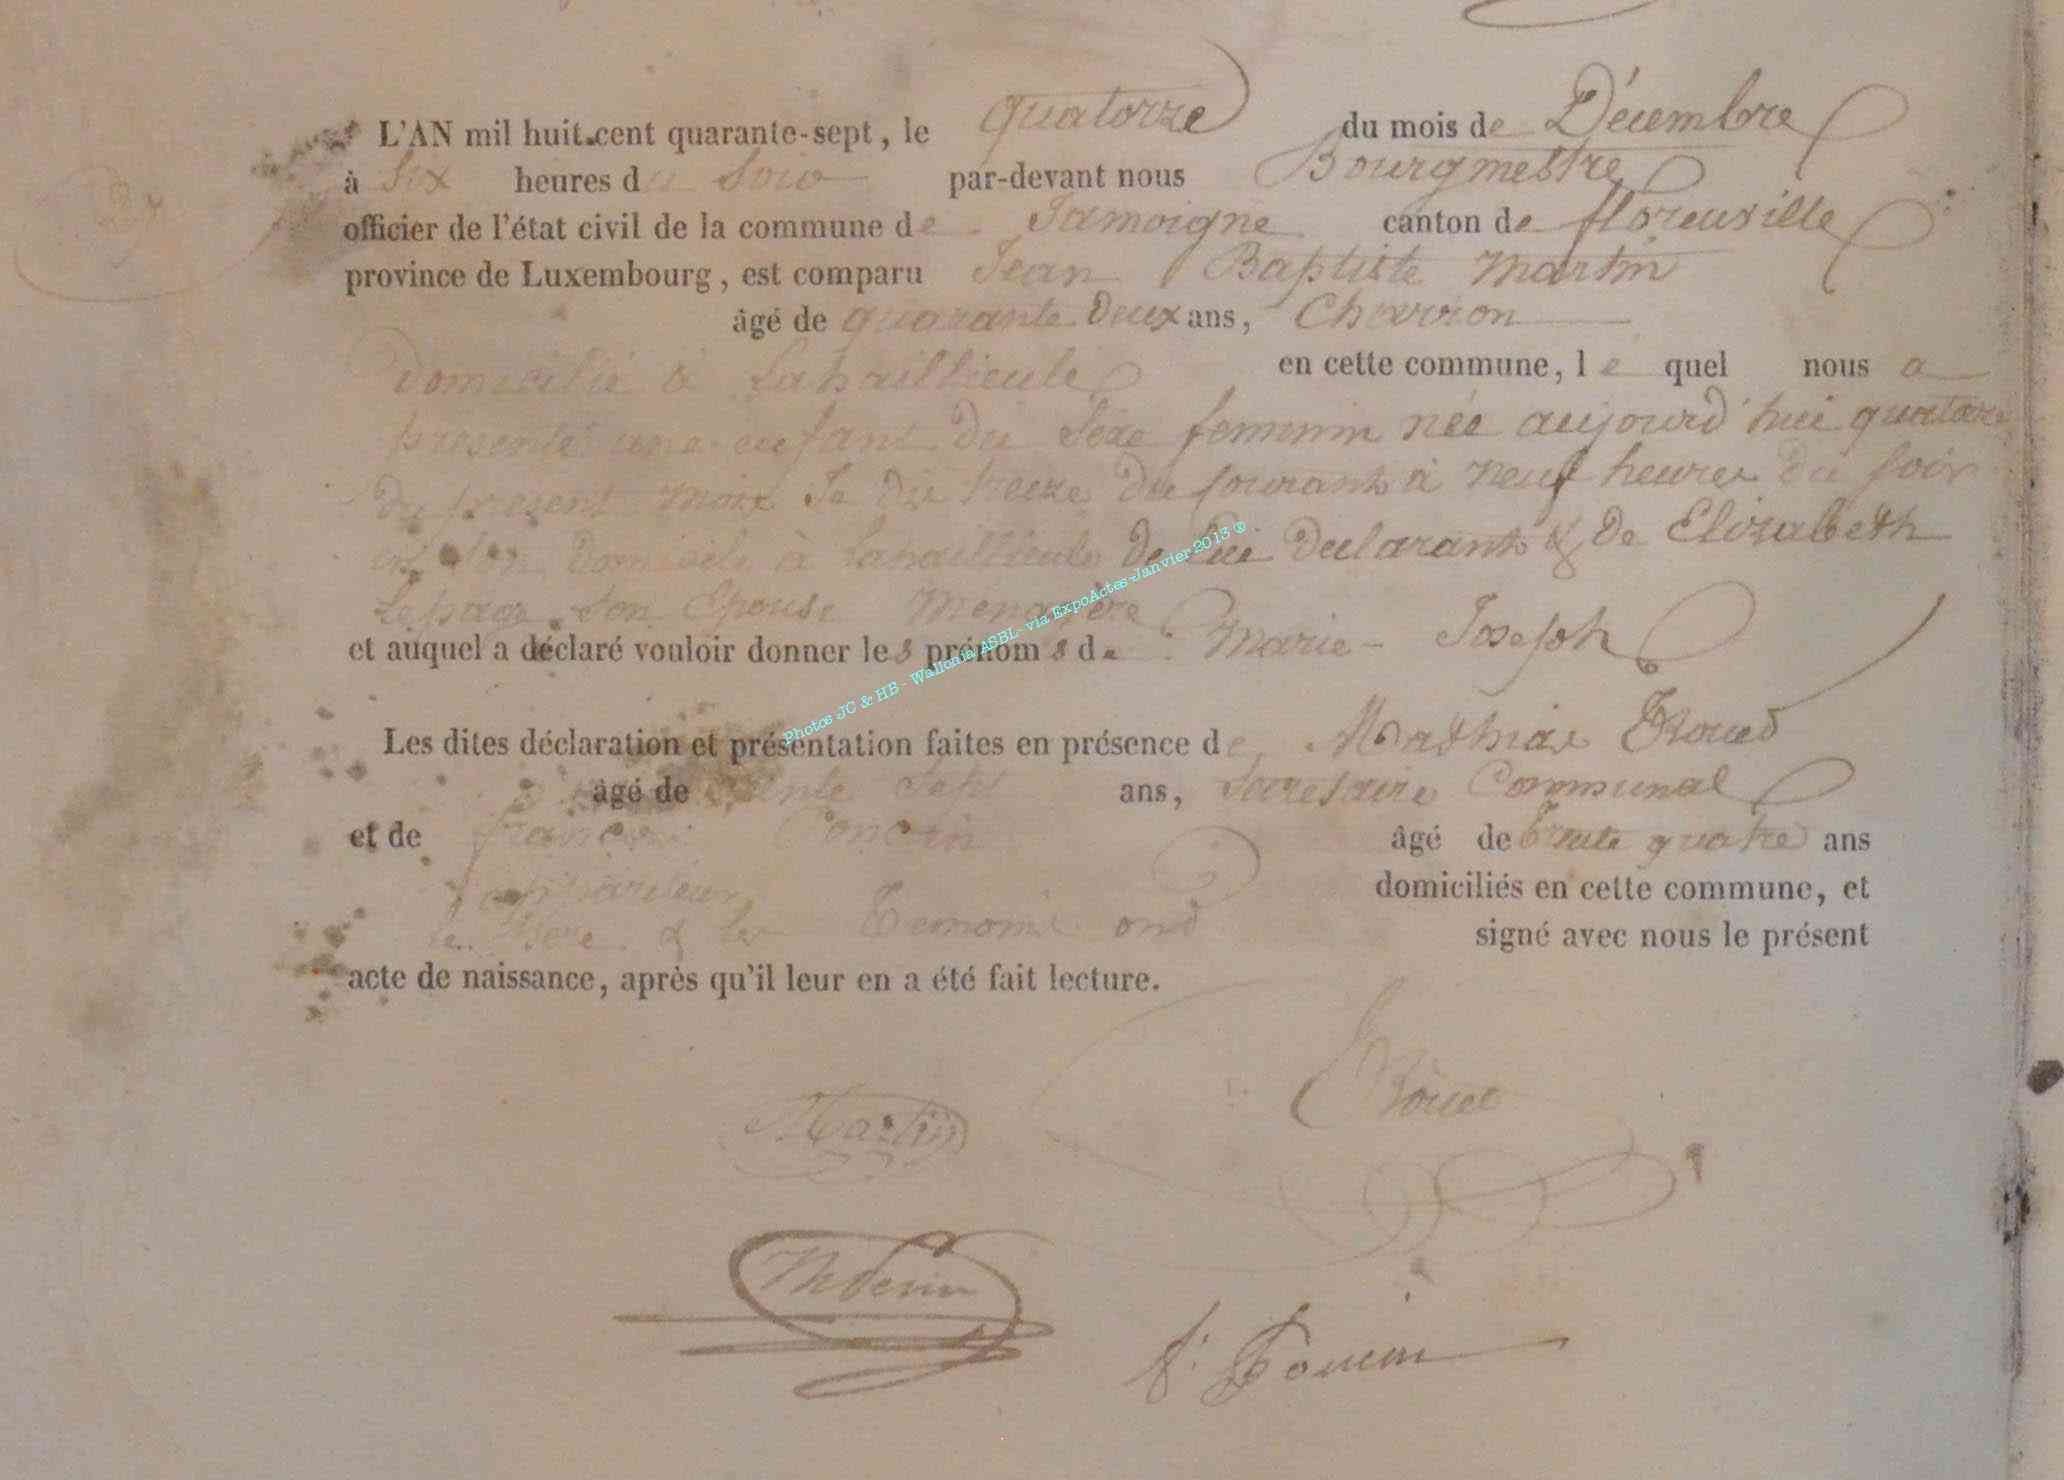 L'AN mil huit cent quarante-sept, le quatorze du mois de Décembre
à Six heures du Soir par-devant nous Bourgmestre
officier de l'état civil de la commune de Jamoigne canton de florenville
province de Luxembourg, est comparu Jean Baptiste Martin
âgé de quarante deux ans, Charron
domicilié à Lahaillieule en cette commune, le quel nous a
présenté une enfant du Sexe feminin née aujourd'hui quatorze
du present mois Je dis treize du courant à neuf heures du soir
en son domicile à Lahaillieule de lui declarant & de Elisabeth
Lepage son Epouse Menagère
et auquel a déclaré vouloir donner les prénoms de Marie - Joseph
Les dites déclaration et présentation faites en présence de Mathias
âgé de Sept ans, Secretaire Communal
et de françois âgé de trente quatre ans
domiciliés en cette commune, et
le Père & les Temoins ont signé avec nous le présent
acte de naissance, après qu'il leur en a été fait lecture.
Martin
Photos JC & HB - Wallonia ASBL - via ExpoActes-Janvier 2013 ®